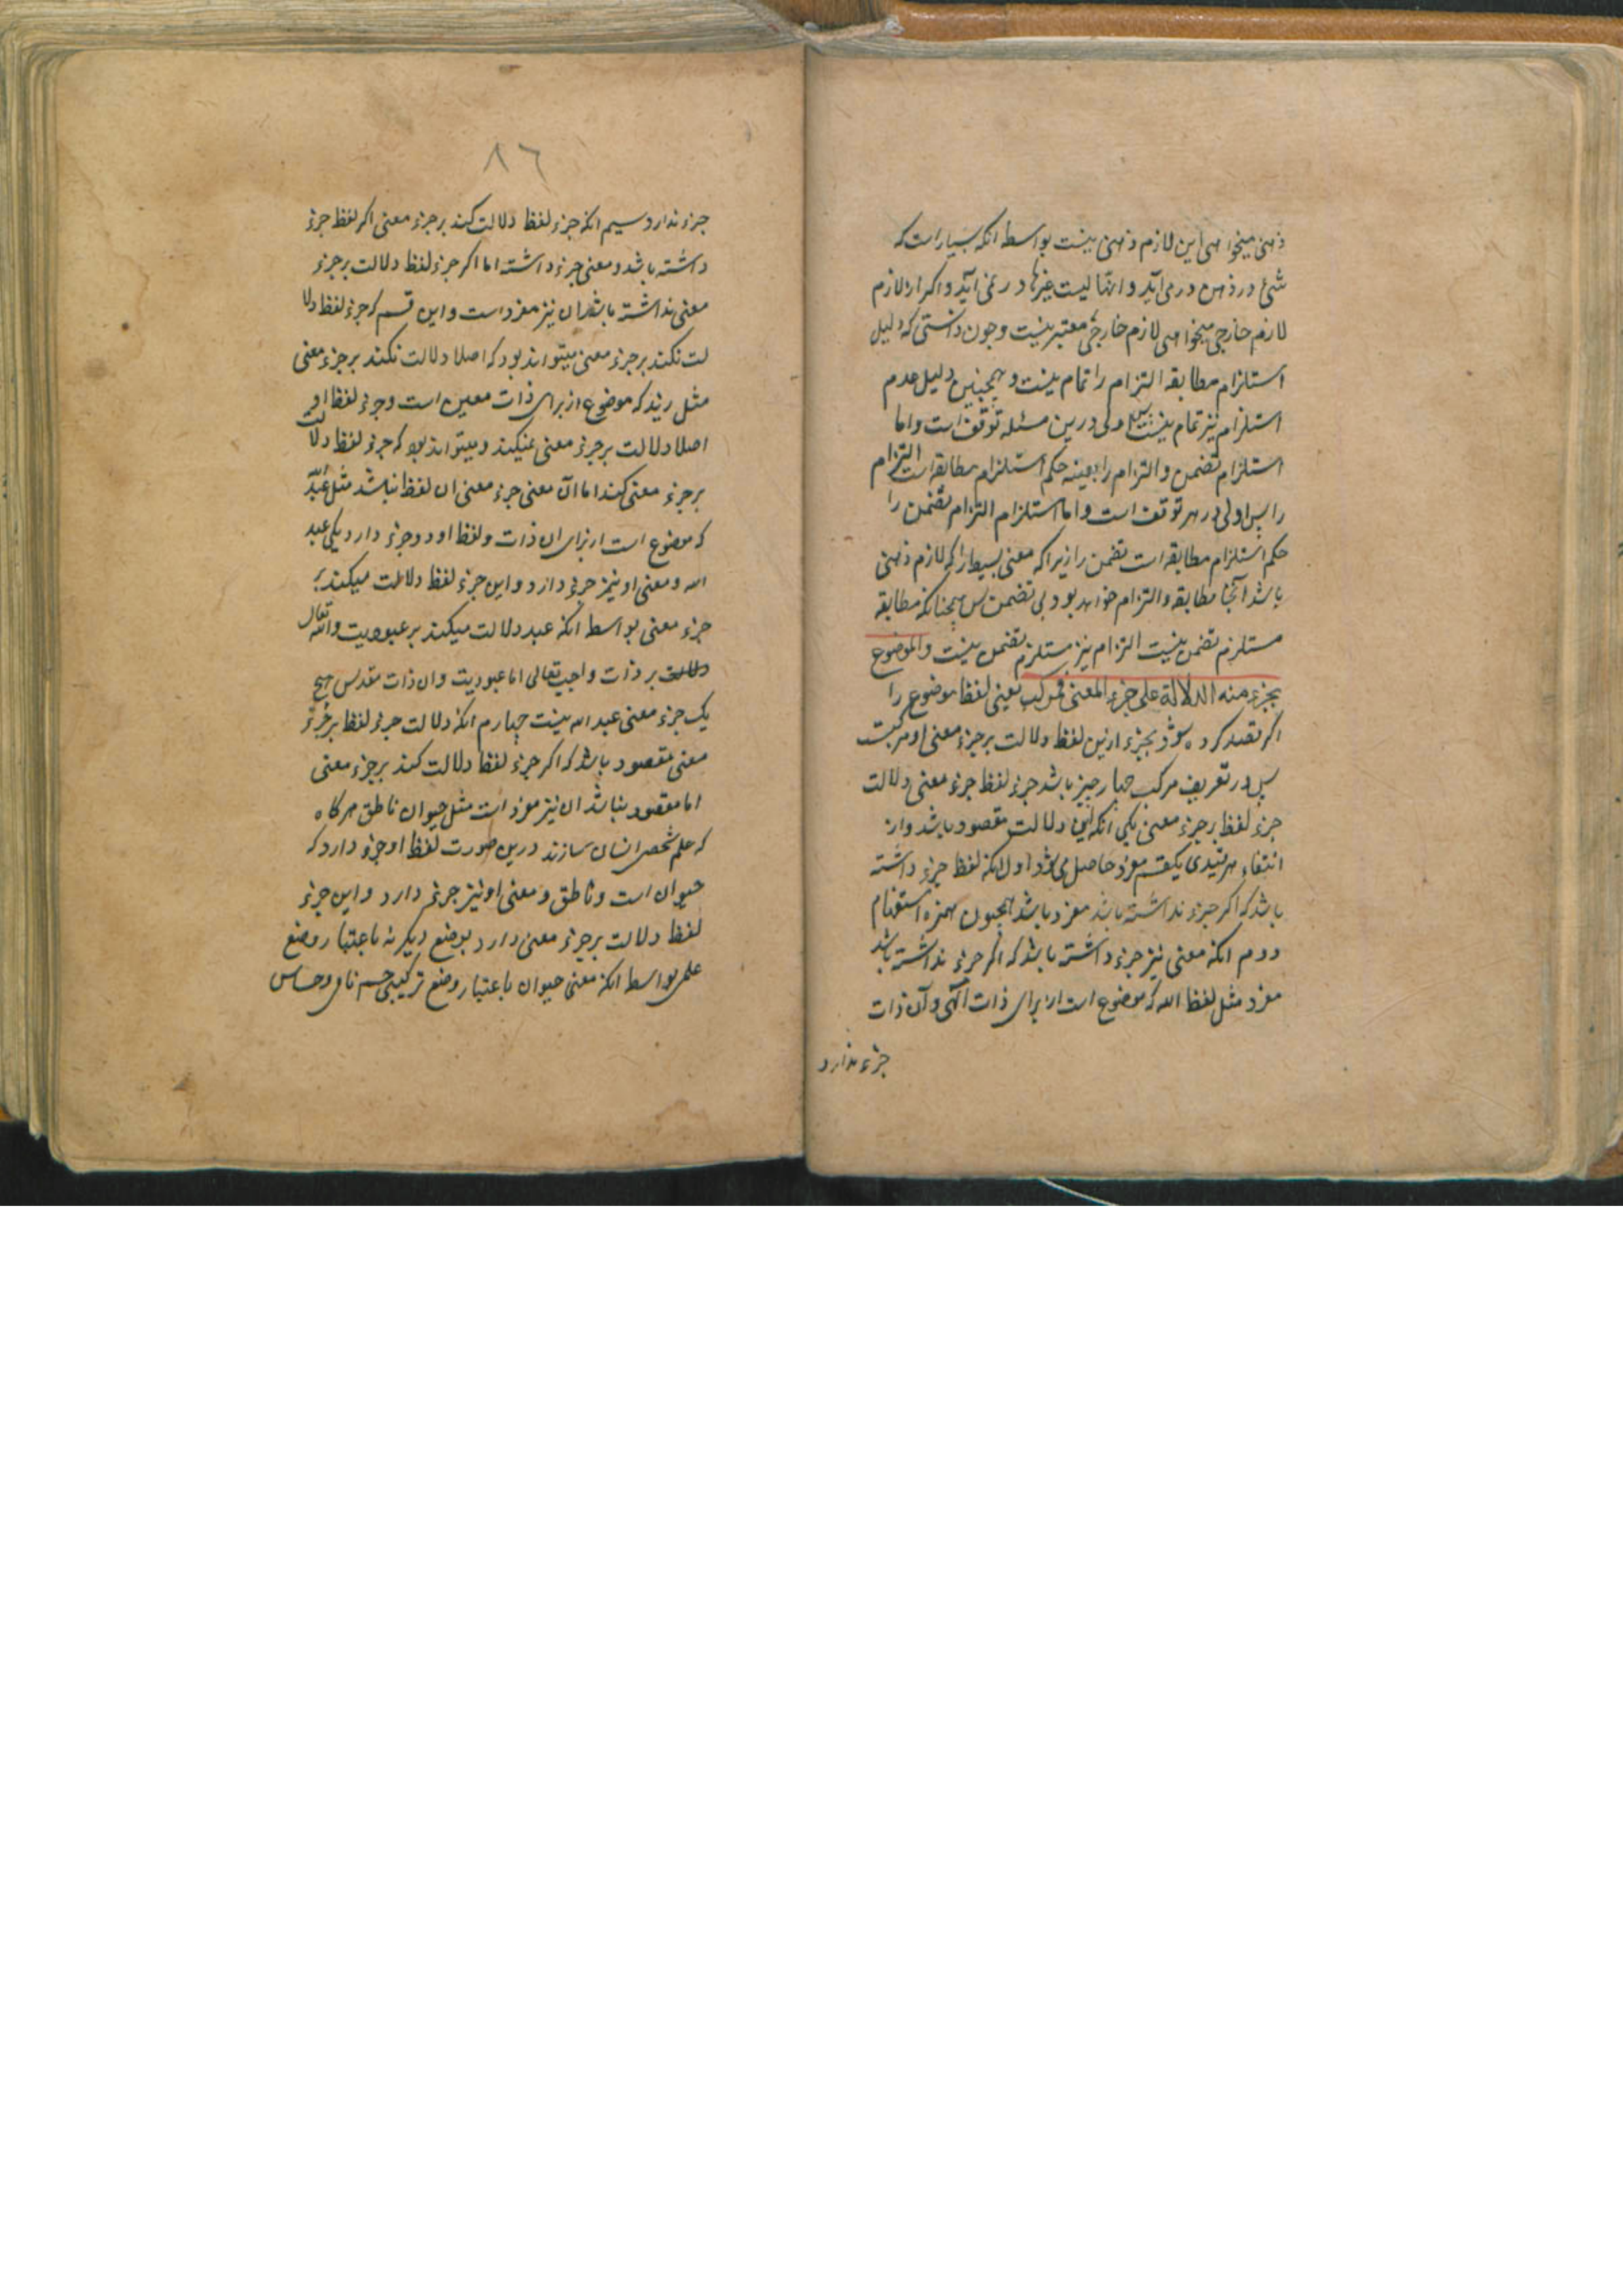 ذهنی میخواهی این لازم ذهنی نیست بواسطه انکه بسیار است که
شئ در ذهن در می آید و انها لیست غیرها در نمی آید و اکر از لازم
لازم خارجی میخواهی لازم خارجی معتبر نیست و چون دانستی که دلیل
استلزام مطابقه التزام را تمام نیست و همچنین دلیل عدم
استلزام نیز تمام نیست پس اولی درین مسئله توقف است و اما
استلزام تضمن و التزام را بعینه حکم استلزام مطابقه است التزام
را پس اولی در هر توقف است و اما استلزام التزام تضمن را
حکم استلزام مطابقه است تضمن را زیرا که معنی بسیط را که لازم ذهنی
باشد آنجا مطابقه و التزام خواهد بود بی تضمن پس همچنانکه مطابقه
مستلزم تضمن نیست التزام نیز مستلزم تضمن نیست و الموضوع
بجزء منه الدلالة علی جزء المعنی فمرکب یعنی لفظ موضوع را
اکر قصد کرده شود بجزء ازین لفظ دلالت بر جزء معنی او مرکبست
پس در تعریف مرکب چهار چیز باشد جزء لفظ جزء معنی دلالت
جزء لفظ بر جزء معنی یکی انکه این دلالت مقصود باشد و از
انتفاء هر قیدی یکقسم مفرد حاصل می شود اول انکه لفظ جزء داشته
باشد که اکر جزء نداشته باشد مفرد باشد همچون همزه استفهام
دوم انکه معنی نیز جزء داشته باشد که اکر جزء نداشته باشد
مفرد مثل لفظ الله که موضوع است از برای ذات الهی و آن ذات
جزء ندارد
٨٦
جزء ندارد سیم انکه جزء لفظ دلالت کند بر جزء معنی اکر لفظ جزء
داشته باشد و معنی جزء داشته اما اکر جزء لفظ دلالت بر جزء
معنی نداشته باشد ان نیز مفرد است و این قسم که جزء لفظ دلا
لت نکند بر جزء معنی میتواند بود که اصلا دلالت نکند بر جزء معنی
مثل زید که موضوع از برای ذات معین است و جزء لفظ او
اصلا دلالت بر جزء معنی نمیکند و میتواند بود که جزء لفظ دلالت
بر جزء معنی کند اما آن معنی جزء معنی ان لفظ نباشد مثل عبد الله
که موضوع است از برای ان ذات و لفظ او دو جزء دارد یکی عبد
الله و معنی او نیز جزء دارد و این جزء لفظ دلالت میکند بر
جزء معنی بواسطه انکه عبد دلالت میکند بر عبودیت و الله تعالی
دلالت بر ذات واجب تعالی اما عبودیت و ان ذات مقدس هیچ
یک جزء معنی عبد الله نیست چهارم انکه دلالت جزء لفظ بر جزء
معنی مقصود باشد که اکر جزء لفظ دلالت کند بر جزء معنی
اما مقصود نباشد ان نیز مفرد است مثل حیوان ناطق هر کاه
که علم شخص انسان سازند درین صورت لفظ او جزء دارد که
حیوان است و ناطق و معنی او نیز جزء دارد و این جزء
لفظ دلالت بر جزء معنی دارد بوضع دیکر نه باعتبار وضع
علمی بواسطه انکه معنی حیوان باعتبار وضع ترکیبی جسم نامی و حساس